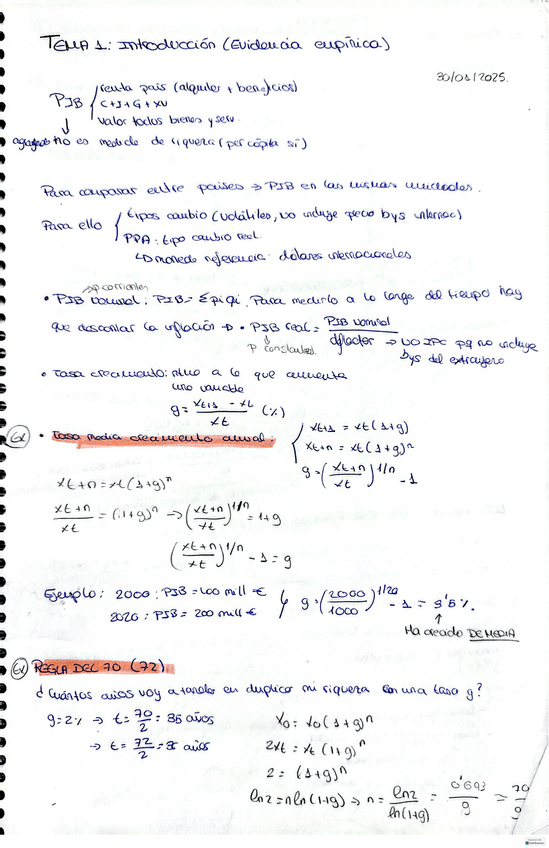 TEMA 1: Introducción (Evidencia empírica)
30/01/2025.
renta país (alquiler + beneficios)
PIB C+I+G+XN
valor todos bienes y serv.
agregado no es medida de riqueza (per cápita sí)
Para comparar entre países → PIB en las mismas unidades.
Para ello tipos cambio (volátiles, no incluye precio bys internac)
PPA: tipo cambio real.
↳ moneda referencia: dólares internacionales
p corrientes
• PIB nominal: PIB = Σpiqi. Para medirlo a lo largo del tiempo hay
que descontar la inflación → • PIB real = PIB nominal / deflactor → NO IPC pq no incluye
p constantes bys del extranjero
• Tasa crecimiento: ritmo a lo que aumenta
una variable
g = xt+1 - xt / xt (%)
Ex • Tasa media crecimiento anual: xt+1 = xt(1+g)
xt+n = xt(1+g)^n
g = (xt+n / xt)^1/n - 1
xt+n = xt(1+g)^n
xt+n / xt = (1+g)^n → (xt+n / xt)^1/n = 1+g
(xt+n / xt)^1/n - 1 = g
Ejemplo: 2000: PIB = 100 mill €
2020: PIB = 200 mill €
g = (2000 / 1000)^1/20 - 1 = 3'5%.
Ha crecido DE MEDIA
Ex REGLA DEL 70 (72)
¿Cuántos años voy a tardar en duplicar mi riqueza con una tasa g?
g = 2% → t = 70/2 = 35 años
→ t = 72/2 = 36 años
x0 = x0(1+g)^n
2xt = xt(1+g)^n
2 = (1+g)^n
ln2 = n ln(1+g) → n = ln2 / ln(1+g) = 0'693 / g = 70 / g